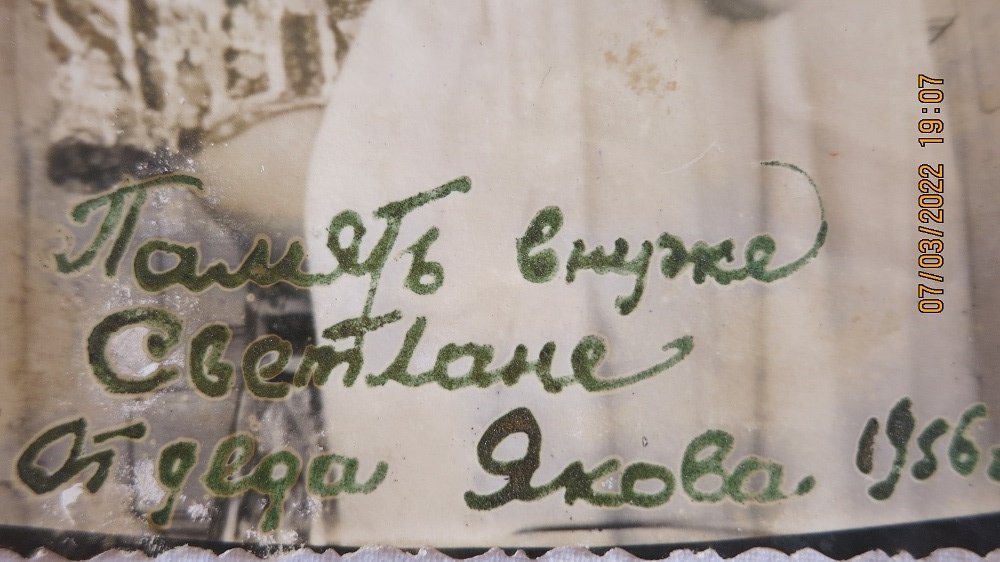 Память внучке
Светлане
От деда Якова 1956г
07/03/2022 19:07